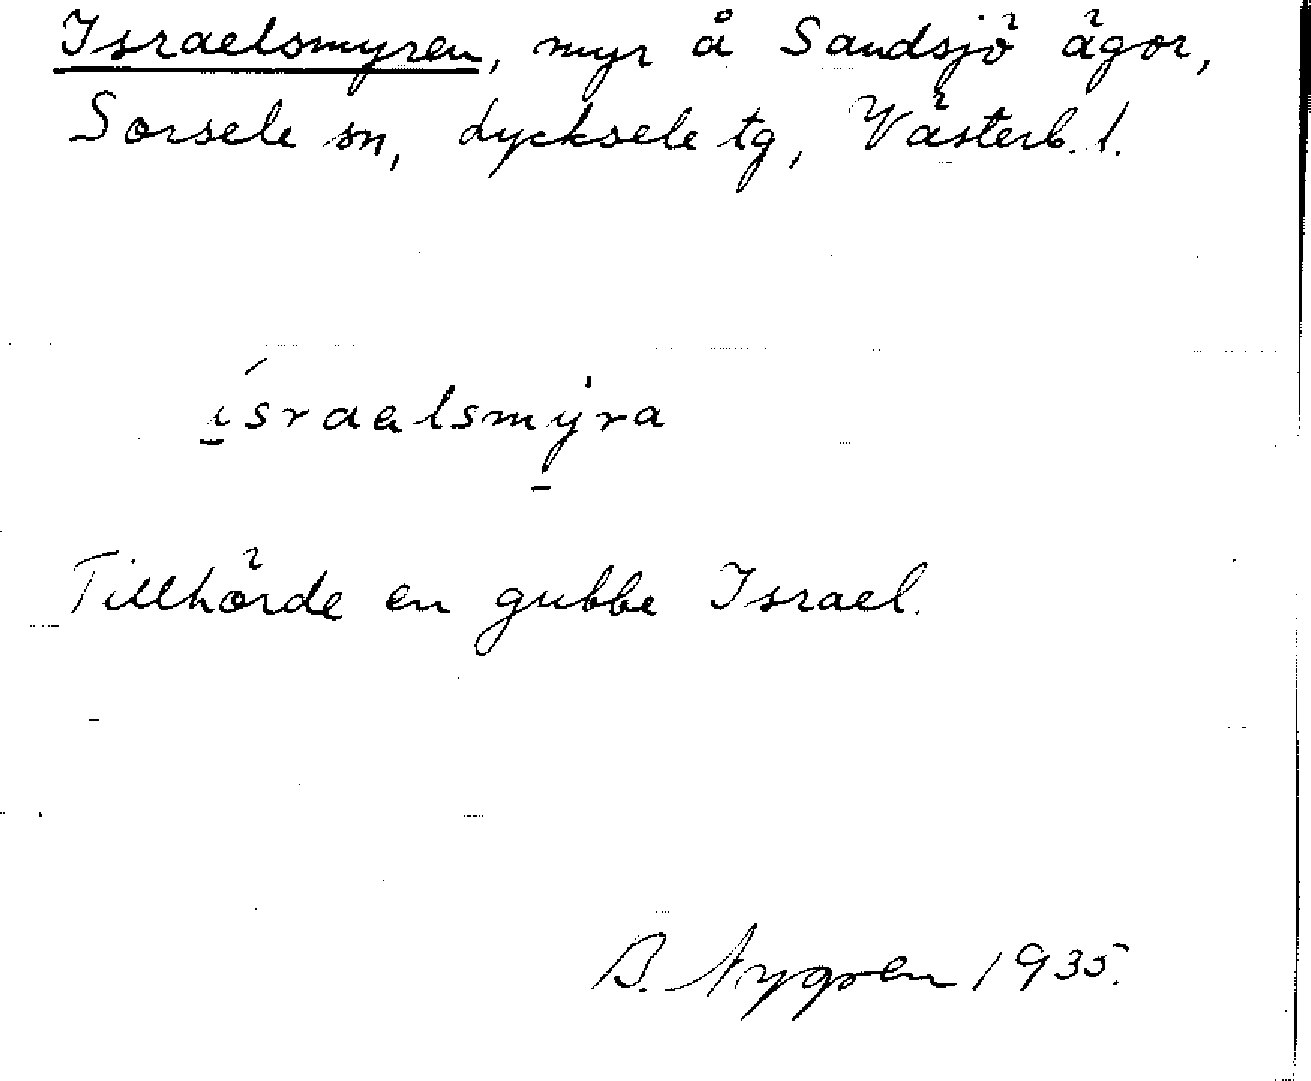 Israelsmyren, myr å Sandsjö ägor,
Sorsele sn, Lycksele tg, Västerb. l.
í̱sraelsmy̱̍ra
Tillhörde en gubbe Israel.
B. Nygren 1935.